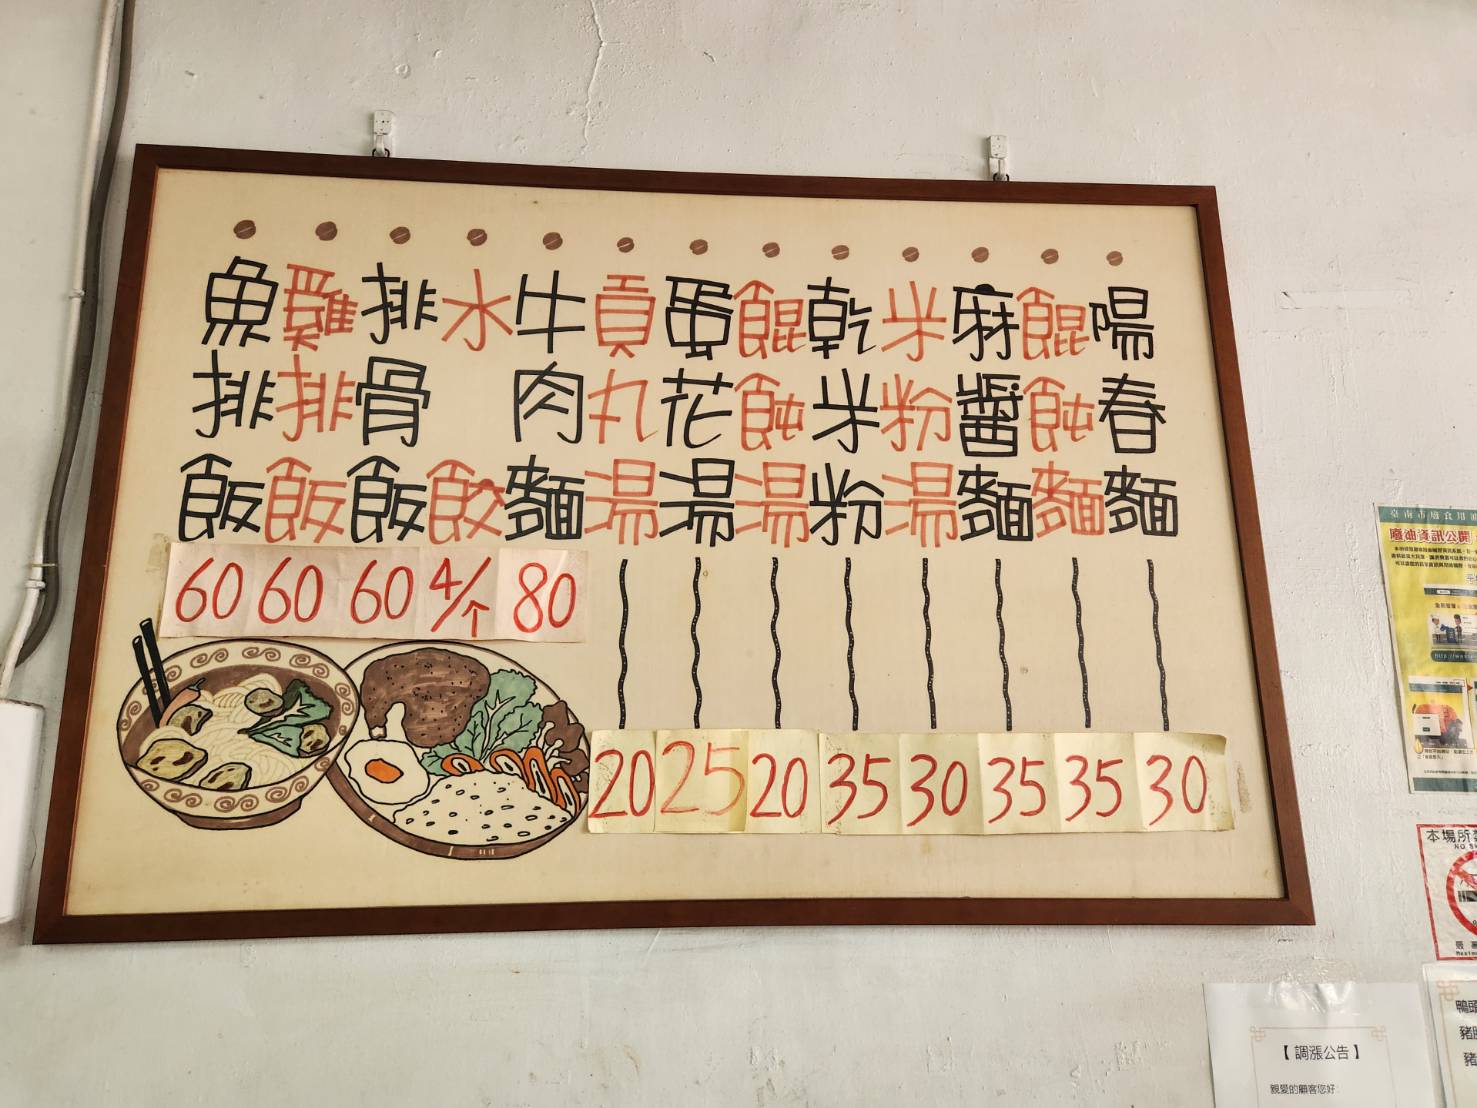 陽春麵 30
餛飩麵 35
麻醬麵 35
米粉湯 30
乾米粉 35
餛飩湯 20
蛋花湯 25
貢丸湯 20
牛肉麵 80
水餃 4/个
排骨飯 60
雞排飯 60
魚排飯 60
臺南市廢食用油
本場所
【 調漲公告 】
親愛的顧客您好
鴨頭
豬
豬